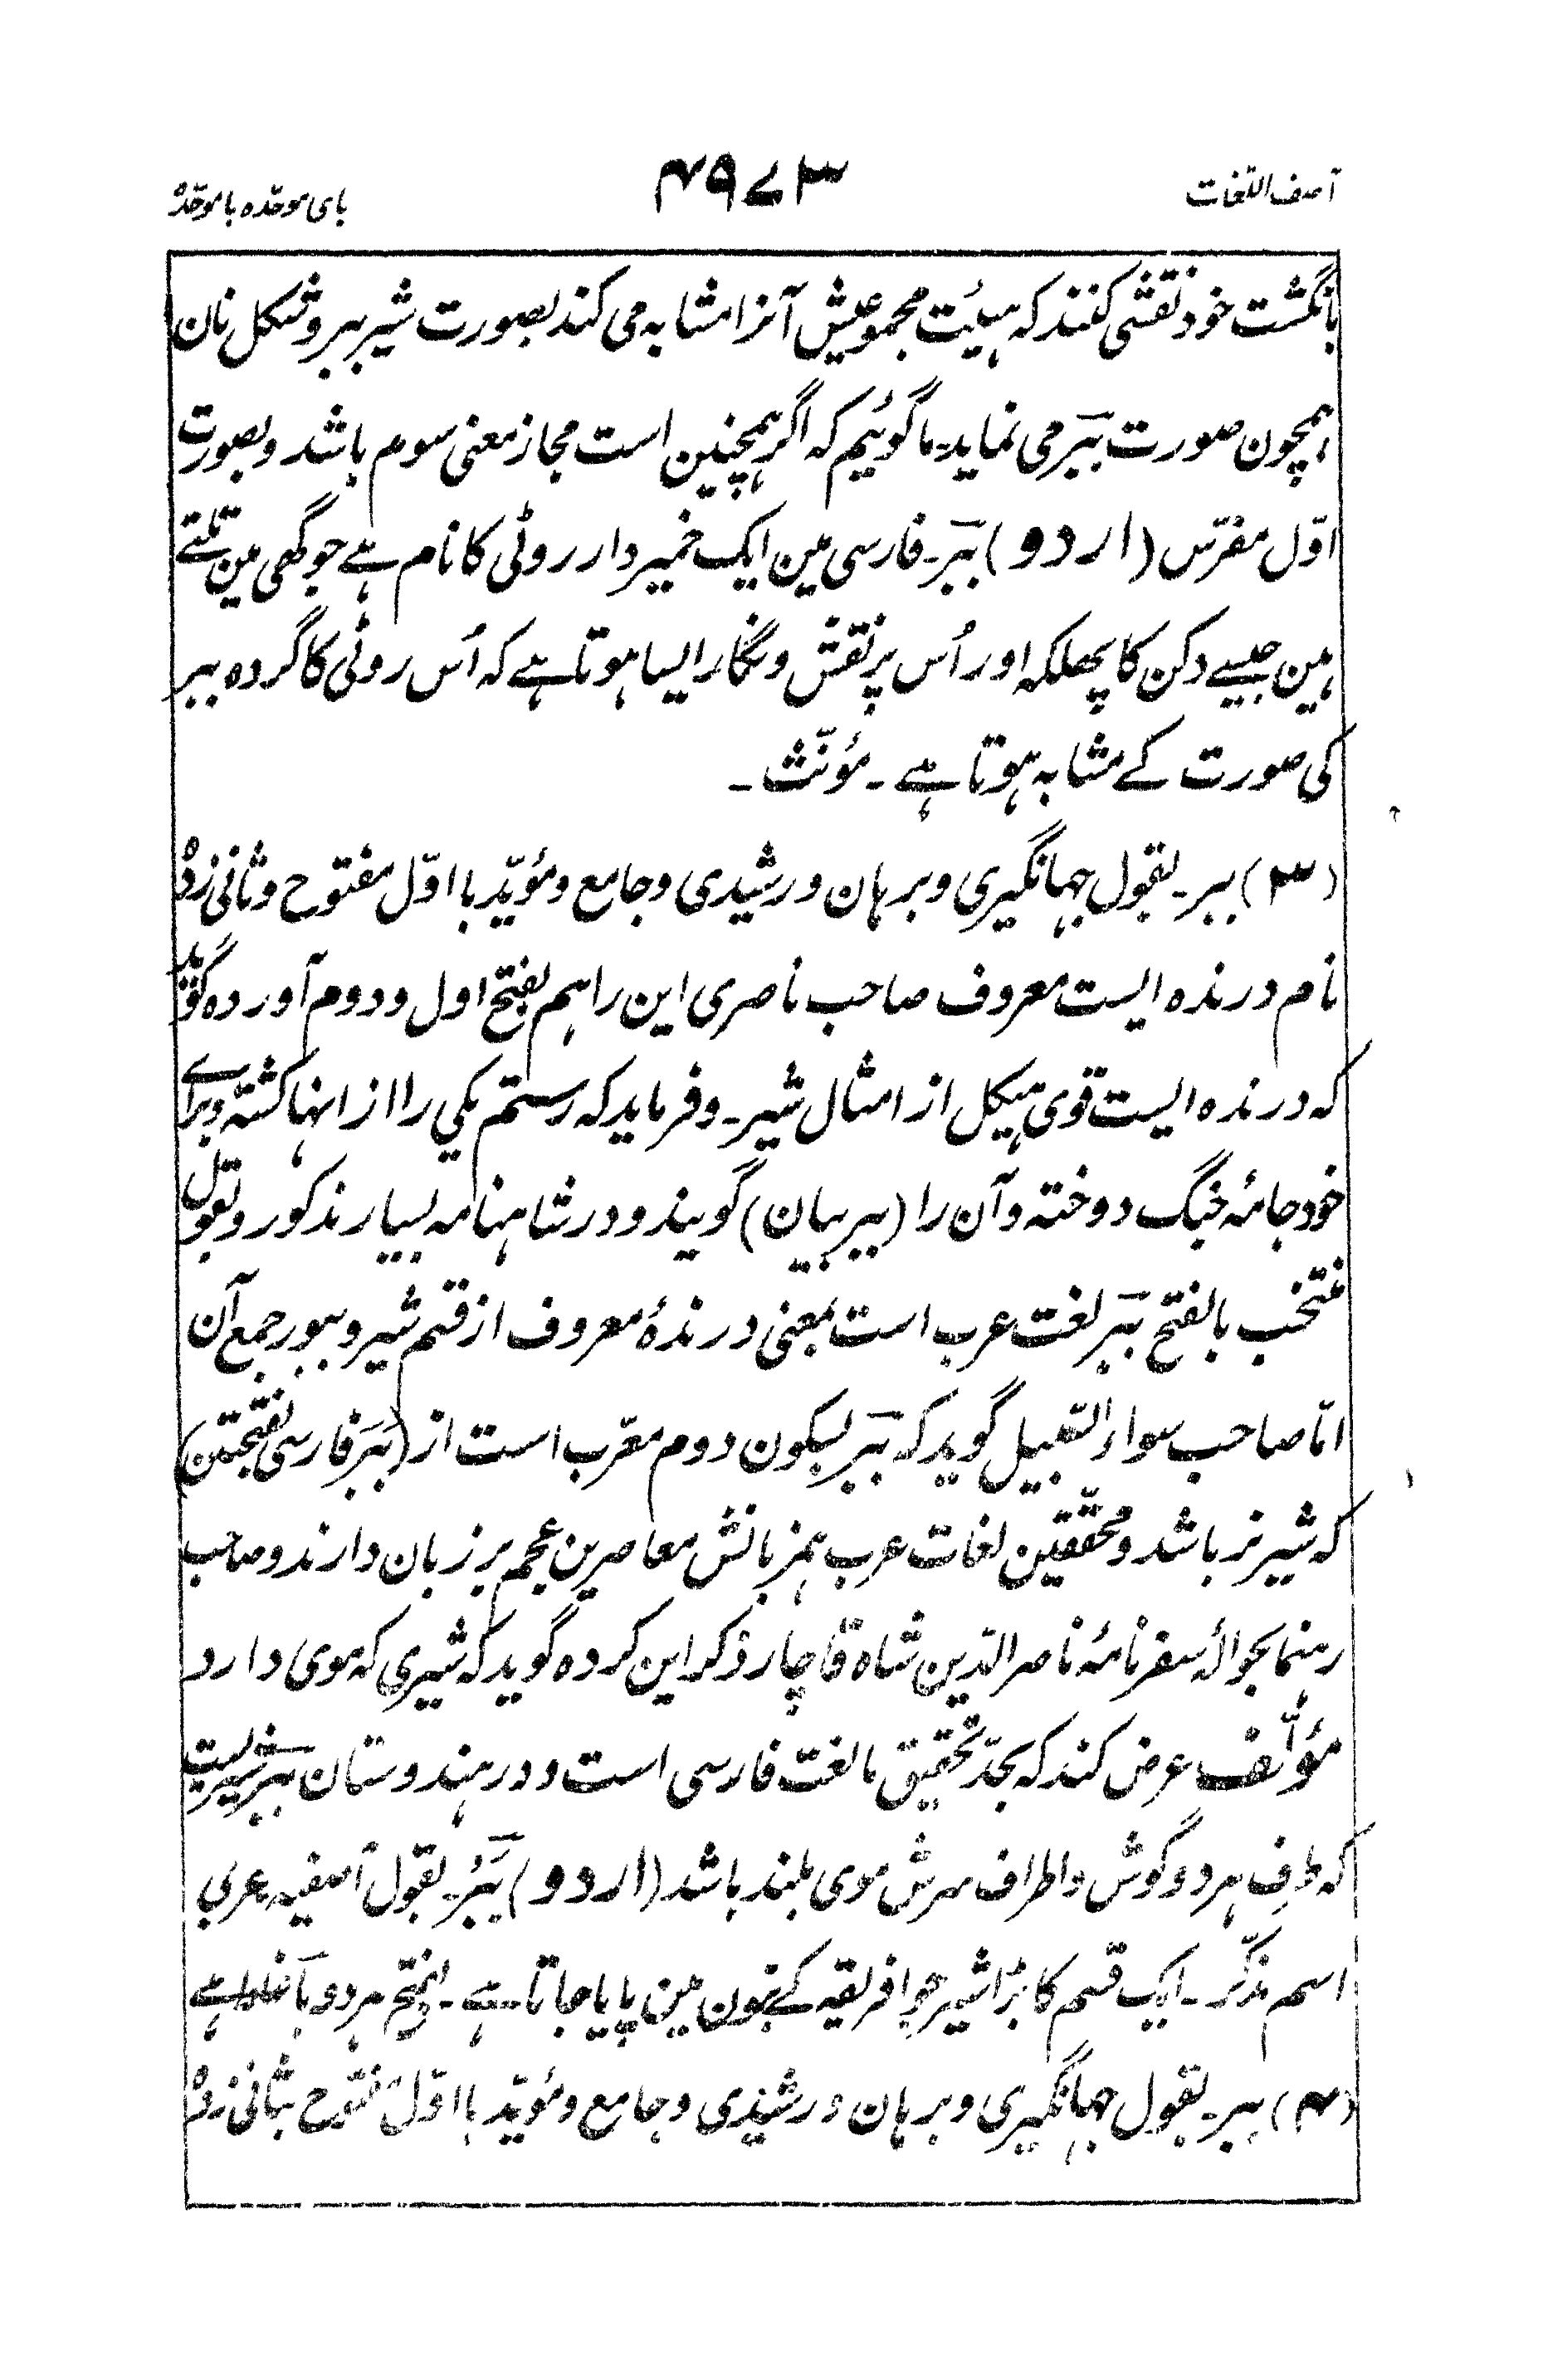 آصف اللغات
۴۹۷۳
بای موحّدہ با موحّدہ
بانگشت خود نقشی کنند کہ ہیئت مجموعیش آنرا مشابہ می کند بصورت شیر ببر و شکل نان
ہمچون صورت بَبَر می نماید۔ ما گوئیم کہ اگر ہمچنین است مجاز معنی سوم باشد و بصورت
اوّل مفرّس (اردو) بَبَر۔ فارسی مین ایک خمیردار روٹی کا نام ہے جو گھی مین تلتے
ہین جیسے دکن کا پھلکہ اور اُس پر نقش و نگار ایسا ہوتا ہے کہ اُس روٹی کا گردہ ببر
کی صورت کے مشابہ ہوتا ہے ۔ مؤنّث ۔
(۳) ببر۔ بقول جہانگیری و برہان و رشیدی و جامع و مؤیّد با اوّل مفتوح و ثانی زدہ
نام درندہ ایست معروف صاحب ناصری این را ہم بفتح اول و دوم آوردہ گوید
کہ درندہ ایست قوی ہیکل از امثال شیر۔ و فرماید کہ رستم یکی را از انہا کشتہ و برای
خود جامۂ جنگ دوختہ و آن را (ببر بیان) گویند و در شاہنامہ بسیار مذکور و بقول
منتخب بالفتح بَبَر لغت عرب است بمعنی درندۂ معروف از قسم شیر و ببور جمع آن
امّا صاحب سواء السّبیل گوید کہ بَبَر بسکون دوم معرّب است از (بَبَر فارسی بفتحتین)
کہ شیر نر باشد و محقّقین لغات عرب ہمزبانش معاصرین عجم بر زبان دارند و صاحب
رہنما بحوالۂ سفرنامۂ ناصر الدّین شاہ قاچار ذکر این کردہ گوید کہ شیری کہ موی دارد
مؤلّف عرض کند کہ بحدّ تحقیق ما لغت فارسی است و در ہندوستان ببر شیریست
کہ طرفِ ہر دو گوش و اطراف سرش موی بلند باشد (اردو) بَبَر۔ بقول آصفیہ عربی
اسم مذکّر ۔ ایک قسم کا بڑا شیر جو افریقہ کے بنون مین پایا جاتا ہے ۔ بفتح ہر دو با غلط ہے
(۴) ببر۔ بقول جہانگیری و برہان و رشیدی و جامع و مؤیّد با اوّل مفتوح بثانی زدہ